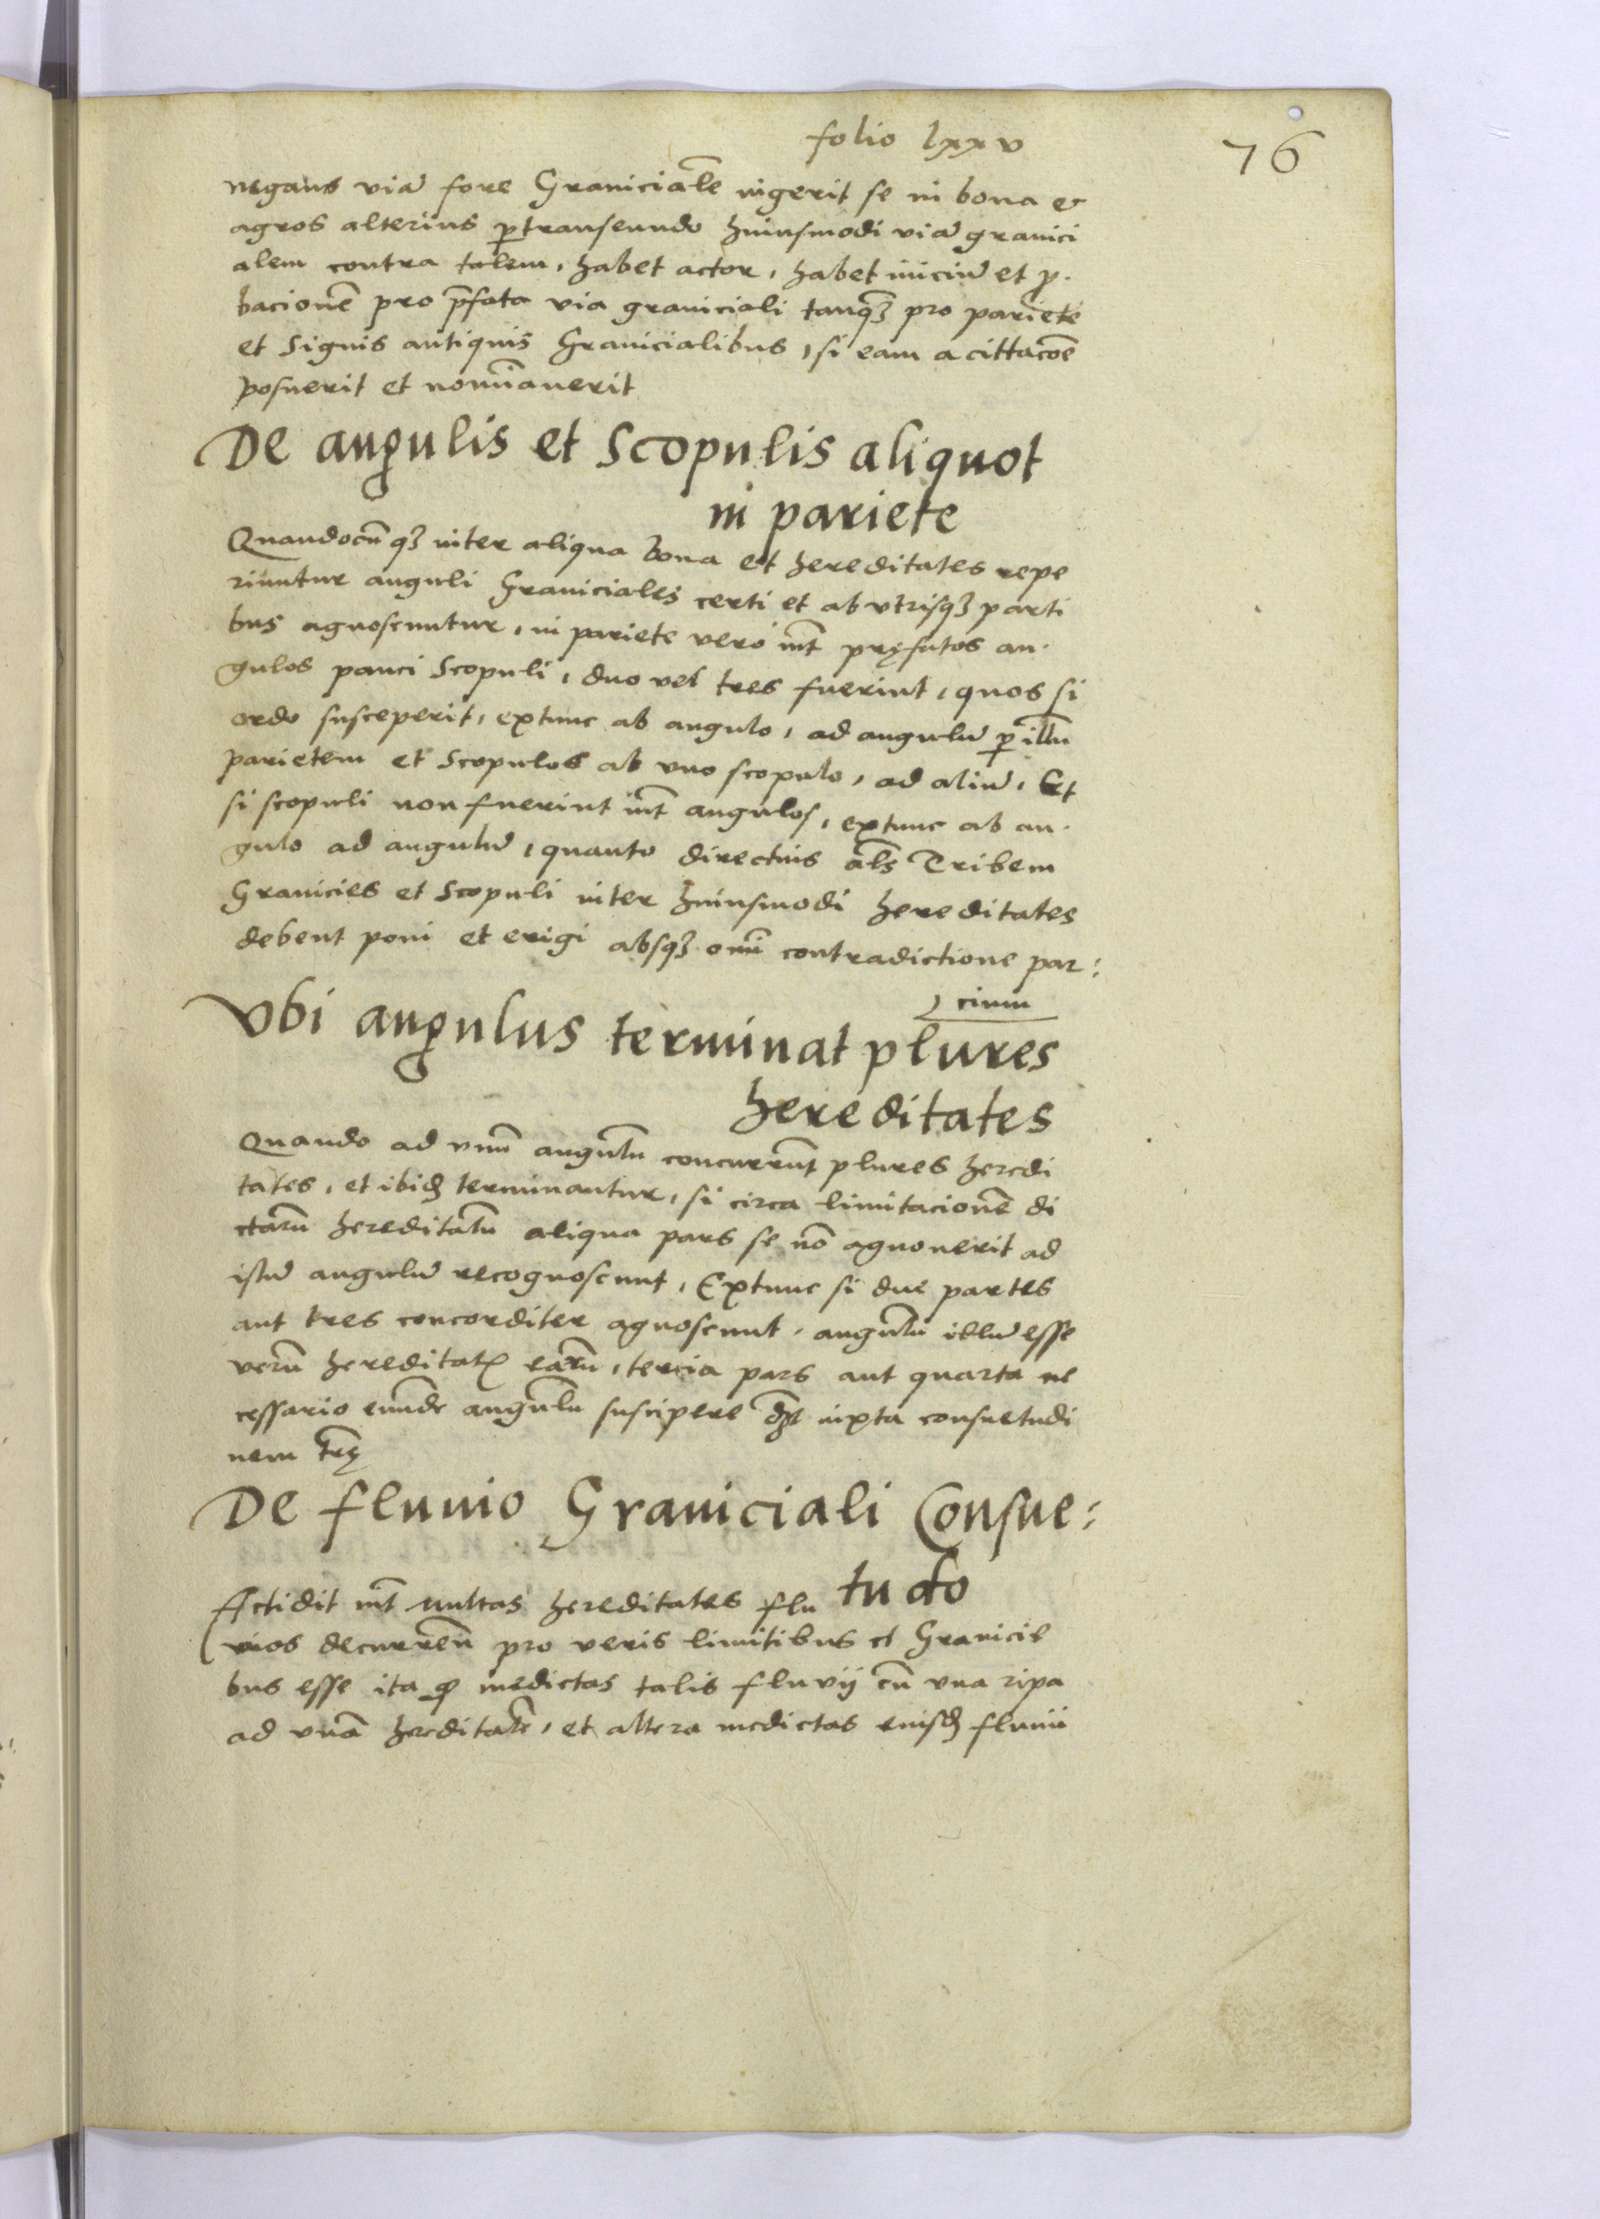 folio lxxv
76
negans viā fore Graniciale͞ ingerit se in bona et
agros alterius ꝑtranseundo huiusmodi viā granici
alem contra talem, habet actor, habet iniciū et ꝓ-
bacione͞ pro p͞fata via graniciali tanqꝫ pro pariete
et Signis antiquis Granicialibus, si eam a cittaco͞e
posuerit et nomi͞auerit
De angulis et Scopulis aliquot
in pariete
Quandocu͞qꝫ inter aliqua bona et hereditates repe
riuntur anguli Graniciales certi et ab vtrisqꝫ parti
bus agnoscuntur, in pariete vero int͞ pręfatos an-
gulos pauci Scopuli, duo vel tres fuerint, quos si
ordo susceperit, extunc ab angulo, ad angulū ꝑ illu͞
parietem et Scopulos ab vno scopulo, ad aliū, Et
si scopuli non fuerint int͞ angulos, extunc ab an-
gulo ad angulū, quanto directius al͞s Tribem
Granicies et Scopuli inter huiusmodi hereditates
debent poni et erigi absqꝫ omi͞ contradictione par:
cium
Vbi angulus terminat plures
hereditates
Quando ad vnu͞ angulu͞ concurru͞t plures heredi
tates, et ibid͞ terminantur, si circa limitacione͞ di
ctaru͞ hereditatu͞ aliqua pars se no͞ agnouerit ad
istū angulū recognoscunt, Extunc si due partes
aut tres concorditer agnoscunt, angulu͞ illū esse
veru͞ hereditatꝫ earu͞, tercia pars aut quarta ne
cessario eunde͞ angulu͞ suscipere d͞t iuxta consuetudi
nem tr͞ę
De fluuio Graniciali Consue:
tudo
Actidit int͞ multas hereditates flu
uios decurren͞ pro veris limitibus et Granicie
bus esse ita ꝙ medietas talis fluvij cu͞ vna ripa
ad vna͞ hereditate͞, et altera medietas eiusd͞ fluuii